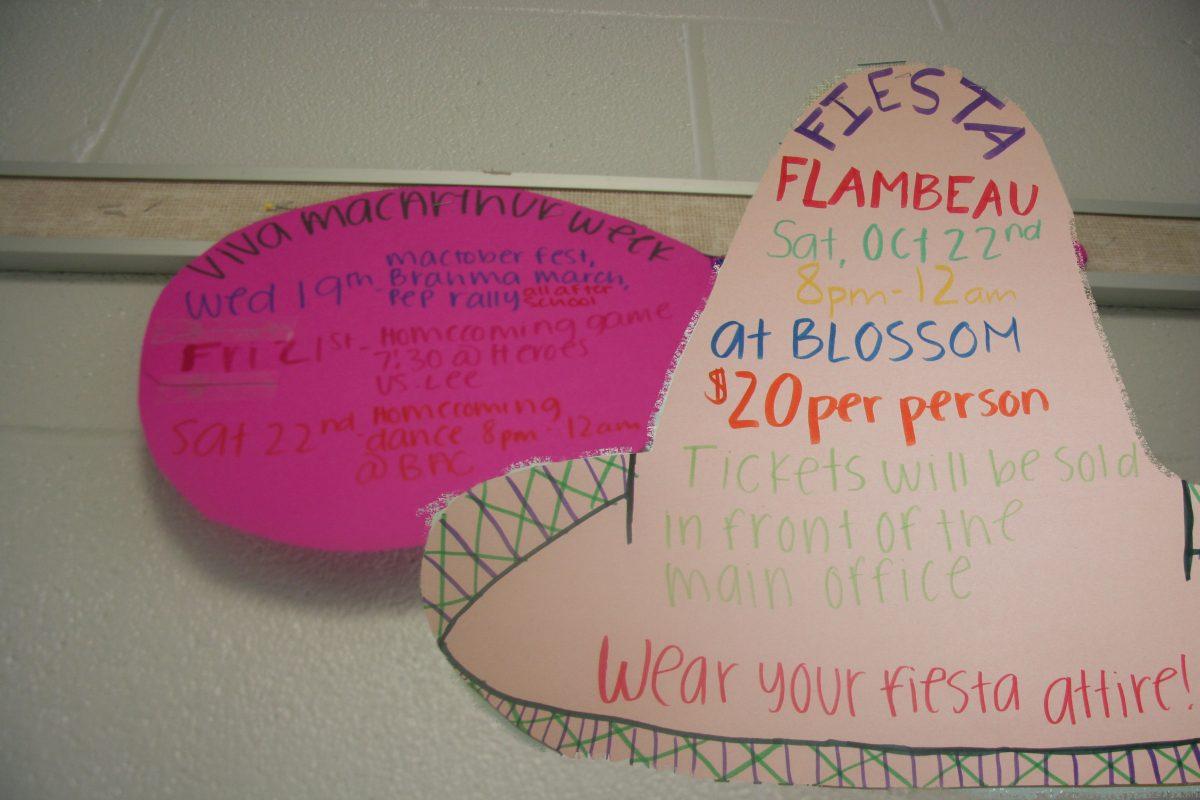 Viva MacArthur Week
Wed 19th - Mactober fest,
Brahma march,
Pep rally all after
school
Fri 21st - Homecoming game
7:30 @ Heroes
vs. Lee
Sat 22nd - Homecoming
dance 8pm - 12am
@ BAC
FIESTA
FLAMBEAU
Sat, Oct 22nd
8pm - 12am
at BLOSSOM
$20 per person
Tickets will be sold
in front of the
main office
Wear your fiesta attire!